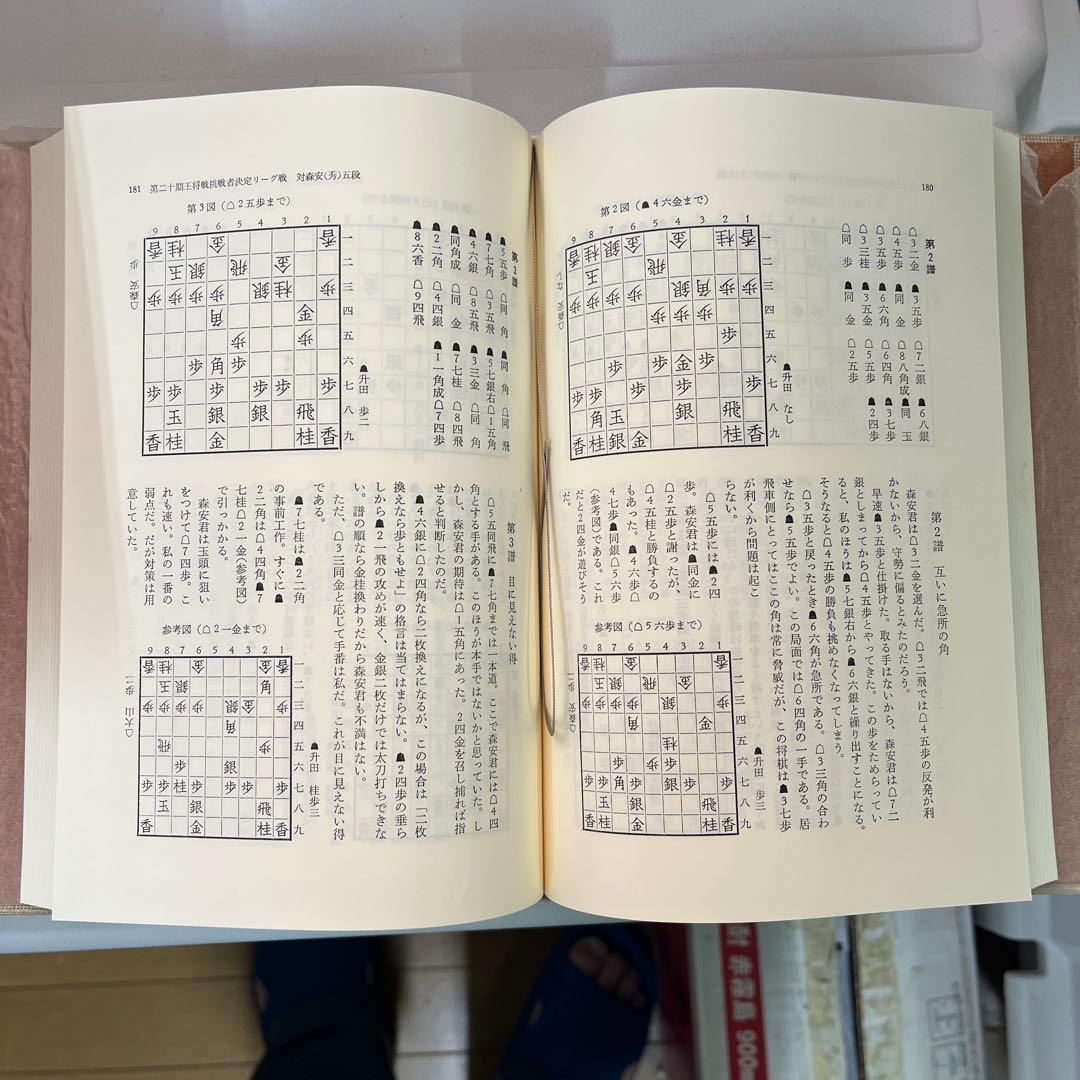 180
第2図（☗4六金まで）
9 8 7 6 5 4 3 2 1
一
二
三
四
五
六
七
八
九
☗升田 なし
☖森安 なし
第2譜
☖3二金 ☗3五歩 ☖7二銀 ☗6八銀
☖4五歩
☖3五歩 ☗6六角 ☖8八角成 ☗同 玉
☖3三桂
☖同 歩 ☗同 金 ☖2五歩
第2譜 互いに急所の角
森安君は☖3二金を選んだ。☖3二飛では☖4五歩の反発が利
かないから、守勢に偏るとみたのだろう。
早速☗3五歩と仕掛けた。取る手はないから、森安君は☖7二
銀としまってから☖4五歩とやってきた。この歩をためらってい
ると、私のほうは☗5七銀右から☗6六銀と繰り出すことになる。
そうなると☖4五歩の勝負も挑めなくなってしまう。
☖3五歩と戻ったとき☗6六角が急所である。☖3三角の合わ
せなら☗5五歩でよい。この局面では☖6四角の一手である。居
飛車側にとってはこの角は常に脅威だが、この将棋は☗3七歩
が利くから問題は起こ
らない。
☖5五歩には☗2四
歩。森安君は☗同金に
☖2五歩と謝ったが、
☖4五桂と勝負するの
もあった。☗4六歩☖
4七歩☗同銀☖5六歩
（参考図）である。これ
だと2四金が遊びそう
だ。
参考図（☖5六歩まで）
9 8 7 6 5 4 3 2 1
一
二
三
四
五
六
七
八
九
☗升田 歩三
☖森安 歩二
181 第二十期王将戦挑戦者決定リーグ戦 対森安(秀)五段
第3図（☖2五歩まで）
9 8 7 6 5 4 3 2 1
一
二
三
四
五
六
七
八
九
☗升田 歩二
☖森安 歩
第3譜
☗5五歩 ☖同 角 ☗同 角 ☖同 飛
☗7七角 ☖3五飛 ☗5七銀右 ☖1五角
☗4六銀 ☖8五飛 ☗3三金 ☖同 桂
☗同角成 ☖同 金 ☗7七桂 ☖8四飛
☗2二角 ☖4四銀 ☗1一角成 ☖7四歩
☗8六香 ☖9四飛
第3譜 目に見えない得
☖5五同飛に☗7七角までは一本道。ここで森安君には☖4四
角とする手がある。このほうが本手ではないかと思っていた。し
かし、森安君の期待は☖1五角にあった。2四金を召し捕れば指
せると判断したのだ。
☗4六銀に☖2四角なら二枚換えになるが、この場合は「二枚
換えなら歩ともせよ」の格言は当てはまらない。☗2四歩の垂ら
しから☗2一飛の攻めが速く、金銀二枚だけでは太刀打ちできな
い。譜の順なら金桂換わりだから森安君も不満はない。
ただ、☖3三同金と応じて手番は私だ。これが目に見えない得
である。
☗7七桂は☗2二角
の事前工作。すぐに☗
2二角は☖4四角☗7
七桂☖2一金（参考図）
で引っかかる。
森安君は玉頭に狙い
をつけて☖7四歩。こ
れも速い。私の一番の
弱点だ。だが対策は用
意していた。
参考図（☖2一金まで）
9 8 7 6 5 4 3 2 1
一
二
三
四
五
六
七
八
九
☗升田 桂歩三
☖大山 歩二
赤霧島 900m